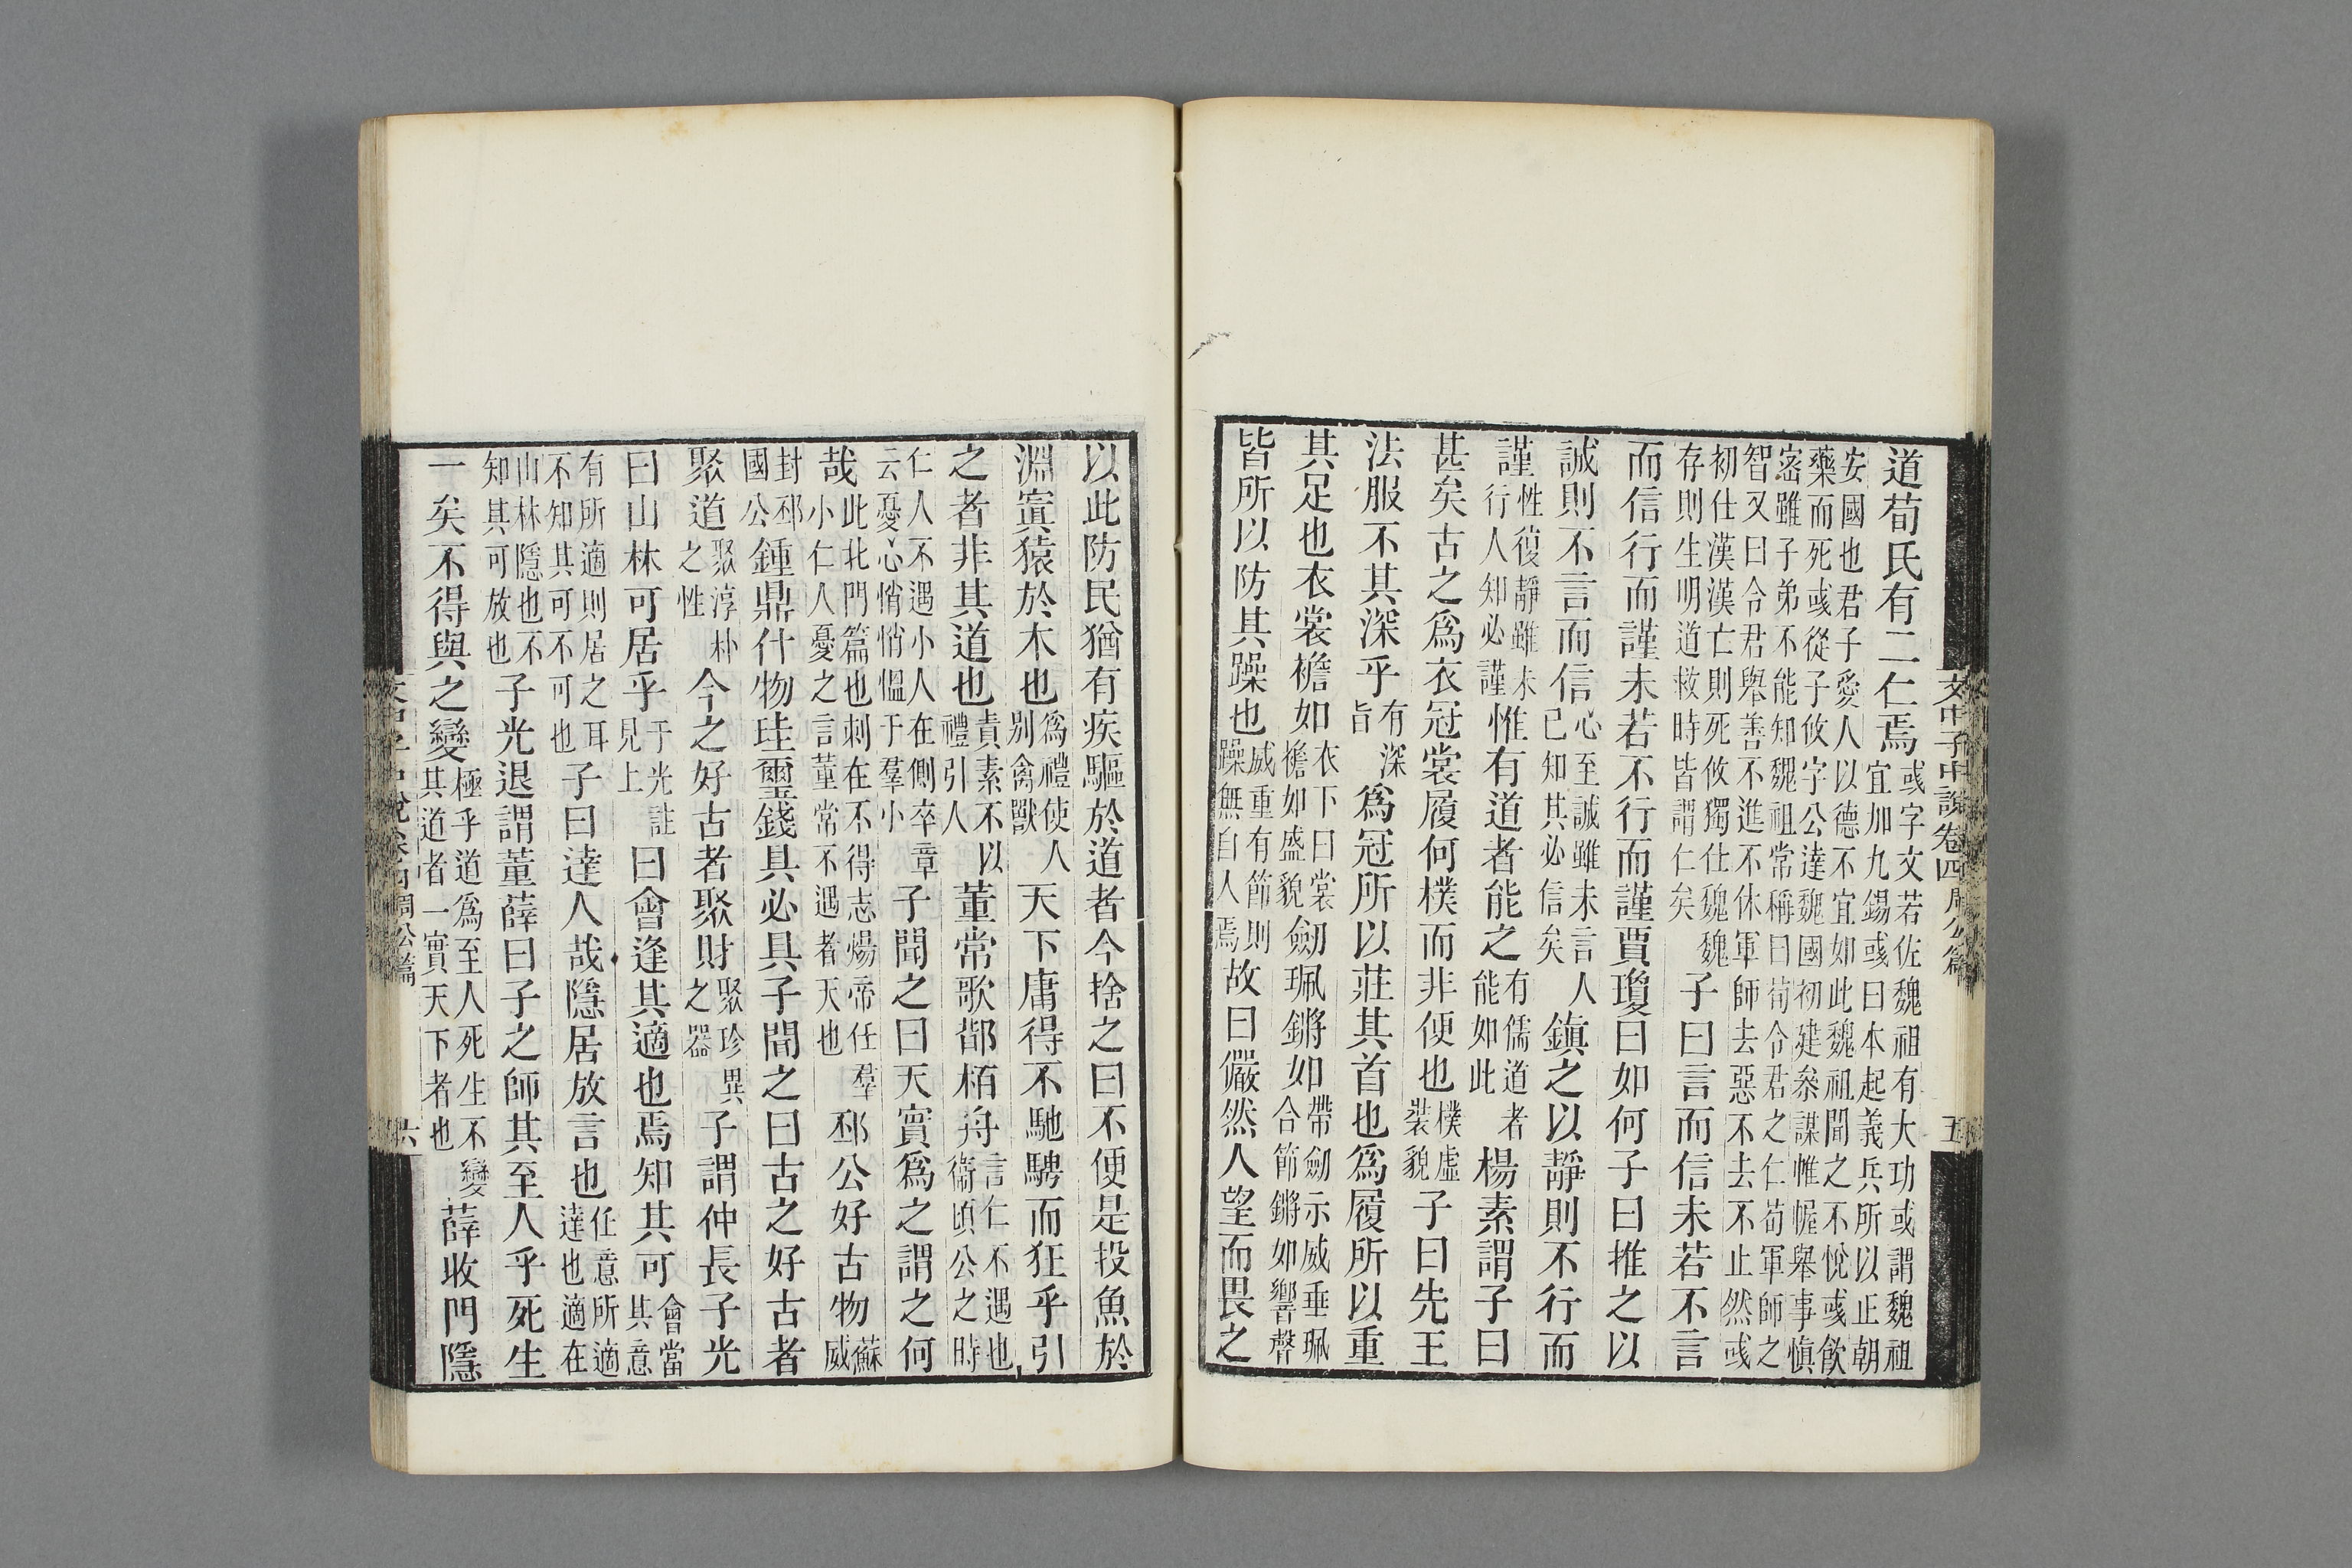 文中子中說卷四周公篇
五
道荀氏有二仁焉
或字文若佐魏祖有大功或謂魏祖
宜加九錫彧曰本起義兵所以正朝
安國也君子愛人以德不宜如此魏祖聞之不悅彧飲
藥而死彧從子攸字公達魏國初建叅謀帷幄舉事慎
宻雖子弟不能知魏祖常稱曰荀令君之仁荀軍師之
智又曰令君舉善不進不休軍師去惡不去不止然彧
初仕漢漢亡則死攸獨仕魏魏
存則生明道救時皆謂仁矣
子曰言而信未若不言
而信行而謹未若不行而謹賈瓊曰如何子曰推之以
誠則不言而信
心至誠雖未言人
己知其必信矣
鎮之以靜則不行而
謹
性復靜雖未
行人知必謹
惟有道者能之
有儒道者
能如此
楊素謂子曰
甚矣古之爲衣冠裳履何樸而非便也
樸虛
裝貌
子曰先王
法服不其深乎
有深
旨
爲冠所以莊其首也爲履所以重
其足也衣裳襜如
衣下曰裳
襜如盛貌
劒珮鏘如
帶劒示威垂珮
合節鏘如響聲
皆所以防其躁也
威重有節則
躁無自人焉
故曰儼然人望而畏之
以此防民猶有疾驅於道者今捨之曰不便是投魚於
淵寘猿於木也
爲禮使人
別禽獸
天下庸得不馳騁而狂乎引
之者非其道也
責素不以
禮引人
董常歌邶栢舟
言仁不遇也
衞頃公之時
仁人不遇小人在側卒章
云憂心悄悄慍于羣小
子聞之曰天實爲之謂之何
哉
此北門篇也刺在不得志煬帝任羣
小仁人憂之言董常不遇者天也
邳公好古物
蘇威
封邳
國公
鍾鼎什物珪璽錢具必具子聞之曰古之好古者
聚道
聚淳朴
之性
今之好古者聚財
聚珍異
之器
子謂仲長子光
曰山林可居乎
于光註
見上
曰會逢其適也焉知其可
會當
其意
有所適則居之耳
不知其可不可也
子曰達人哉隱居放言也
任意所適
達也適在
山林隱也不
知其可放也
子光退謂董薛曰子之師其至人乎死生
一矣不得與之變
極乎道爲至人死生不變
其道者一實天下者也
薛收門隱
六